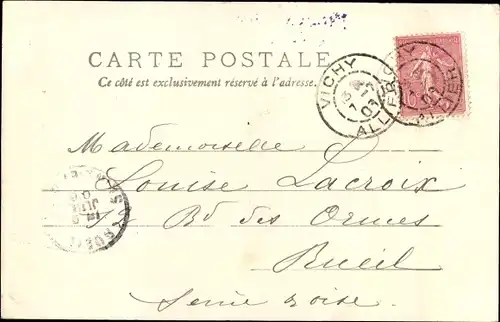 CARTE POSTALE
Ce côté est exclusivement réservé à l'adresse.
VICHY
ALLIER
VICHY
10
Mademoiselle
Louise Lacroix
12 Bd des Ormes
Rueil
Seine & Oise.